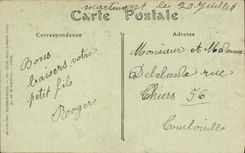 Martinvast le 20 Juillet
Carte Postale
Correspondance
Adresse
Bons
baisers votre
petit fils
Roger
Monsieur et Madame
Delalande rue
Thiers 56
Tourlaville